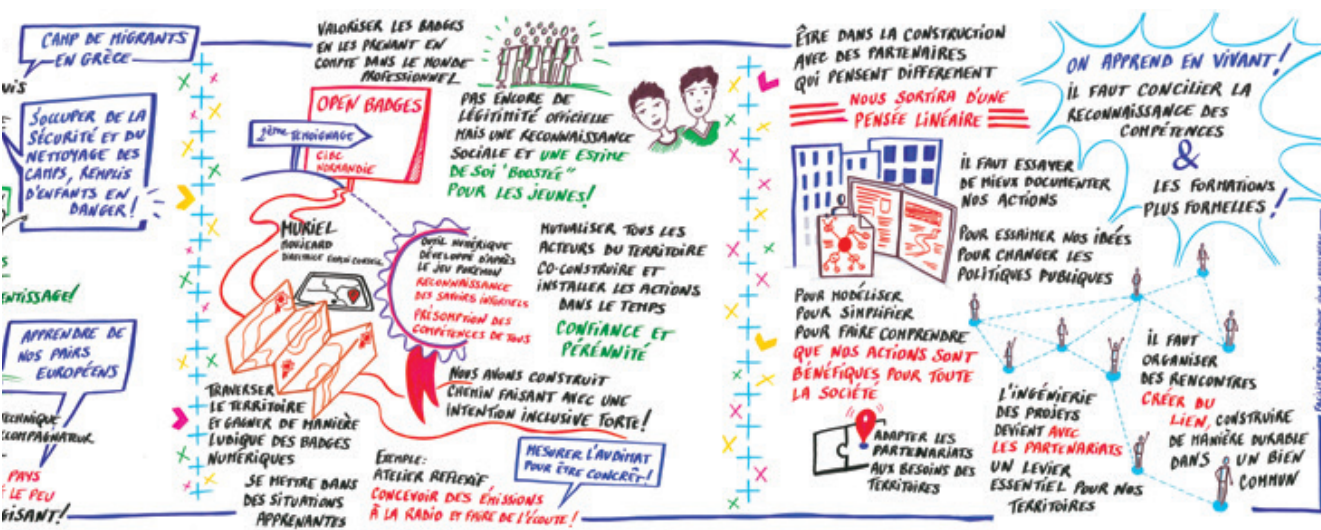 CAMP DE MIGRANTS
EN GRÈCE
UIS
S'OCCUPER DE LA
SÉCURITÉ ET DU
NETTOYAGE DES
CAMPS, REMPLIS
D'ENFANTS EN
DANGER!
ENTISSAGE!
APPRENDRE DE
NOS PAIRS
EUROPÉENS
TECHNIQUE
CCOMPAGNATEUR
PAYS
LE PEU
GISANT!
VALORISER LES BADGES
EN LES PRENANT EN
COMPTE DANS LE MONDE
PROFESSIONNEL
OPEN BADGES
2ÈME TÉMOIGNAGE
CIBC
NORMANDIE
PAS ENCORE DE
LÉGITIMITÉ OFFICIELLE
MAIS UNE RECONNAISSANCE
SOCIALE ET UNE ESTIME
DE SOI "BOOSTÉE"
POUR LES JEUNES!
MURIEL
OUTIL NUMÉRIQUE
DÉVELOPPÉ D'APRÈS
LE JEU POKEMON
RECONNAISSANCE
DES SAVOIRS INFORMELS
PRÉSOMPTION DES
COMPÉTENCES DE TOUS
MUTUALISER TOUS LES
ACTEURS DU TERRITOIRE
CO-CONSTRUIRE ET
INSTALLER LES ACTIONS
DANS LE TEMPS
CONFIANCE ET
PÉRENNITÉ
NOUS AVONS CONSTRUIT
CHEMIN FAISANT AVEC UNE
INTENTION INCLUSIVE FORTE!
TRAVERSER
LE TERRITOIRE
ET GAGNER DE MANIÈRE
LUDIQUE DES BADGES
NUMÉRIQUES
SE METTRE DANS
DES SITUATIONS
APPRENANTES
EXEMPLE:
ATELIER REFLEXIF
CONCEVOIR DES ÉMISSIONS
À LA RADIO ET FAIRE DE L'ÉCOUTE!
MESURER L'AUDIMAT
POUR ÊTRE CONCRÊT!
ÊTRE DANS LA CONSTRUCTION
AVEC DES PARTENAIRES
QUI PENSENT DIFFEREMENT
NOUS SORTIRA D'UNE
PENSÉE LINÉAIRE
ON APPREND EN VIVANT!
IL FAUT CONCILIER LA
RECONNAISSANCE DES
COMPÉTENCES
&
LES FORMATIONS
PLUS FORMELLES!
IL FAUT ESSAYER
DE MIEUX DOCUMENTER
NOS ACTIONS
POUR ESSAIMER NOS IDÉES
POUR CHANGER LES
POLITIQUES PUBLIQUES
POUR MODÉLISER
POUR SIMPLIFIER
POUR FAIRE COMPRENDRE
QUE NOS ACTIONS SONT
BÉNÉFIQUES POUR TOUTE
LA SOCIÉTÉ
ADAPTER LES
PARTENARIATS
AUX BESOINS DES
TERRITOIRES
L'INGÉNIERIE
DES PROJETS
DEVIENT AVEC
LES PARTENARIATS
UN LEVIER
ESSENTIEL POUR NOS
TERRITOIRES
IL FAUT
ORGANISER
DES RENCONTRES
CRÉER DU
LIEN, CONSTRUIRE
DE MANIÈRE DURABLE
DANS UN BIEN
COMMUN